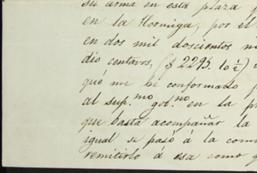 su arma en esta plaza y
en la Hormiga, por el
en dos mil doscientos n
dio centavos, ($ 2293. 10 ½)
qué me he conformado
al sup.mo gob.no en la pr
que basta acompañar la
igual se pasó á la com
remitirlo á esa como q